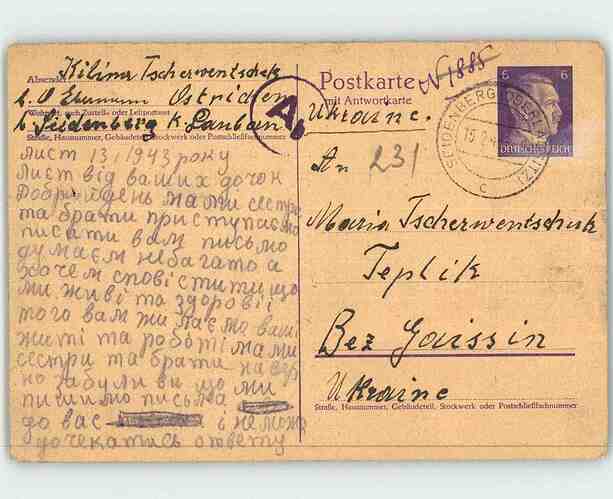 Absender:
Kilina Tscherwentschuk
b. O Ebermann Ostrichen
Wohnort, auch Zustell- oder Leitpostamt
b. Seidenberg K. Lauban
Straße, Hausnummer, Gebäudeteil, Stockwerk oder Postschließfachnummer
Лист 13/1943 року
Лист від ваших дочок
Добрийдень мами сестри
та брати приступаємо
писати вам письмо
думаєм небагато а
хочем сповістити що
ми живі та здорові і
того вам жилаємо ваші
житі та роботі мами
сестри та брати
но забули ви що ми
пишимо письма
до вас і не може
дочекатись ответу
Postkarte
mit Antwortkarte
N 1885
Ukraine.
A
6 6
DEUTSCHES REICH
SEIDENBERG (OBERLAUSITZ)
15.2.
c
An
231
Maria Tscherwentschuk
Teplik
Bez Gaissin
Ukraine
Straße, Hausnummer, Gebäudeteil, Stockwerk oder Postschließfachnummer